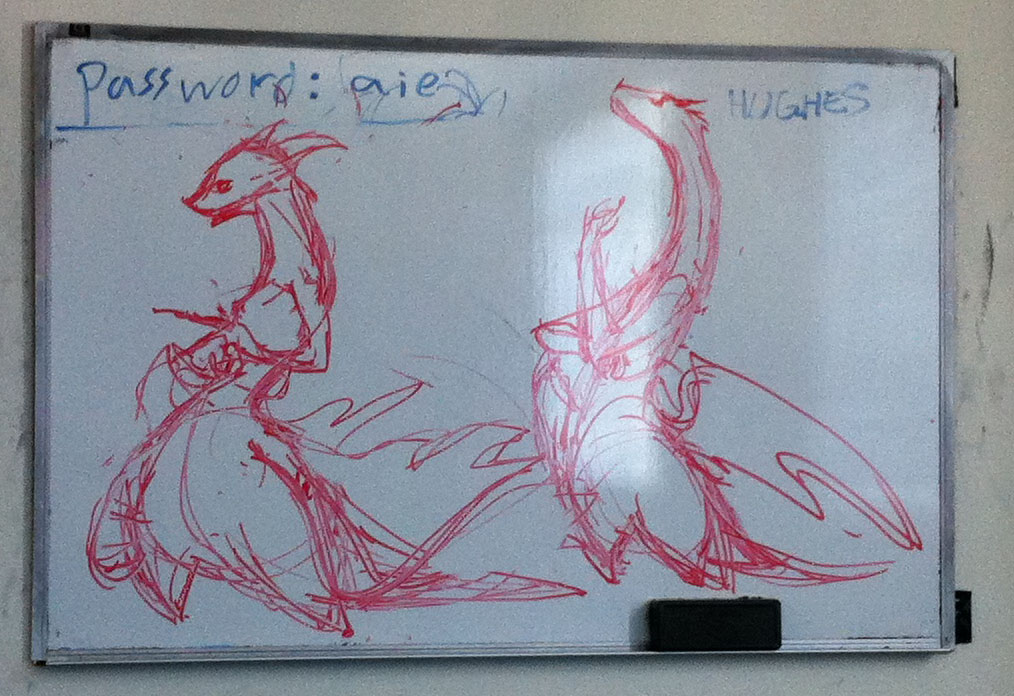 Password:
HUGHES